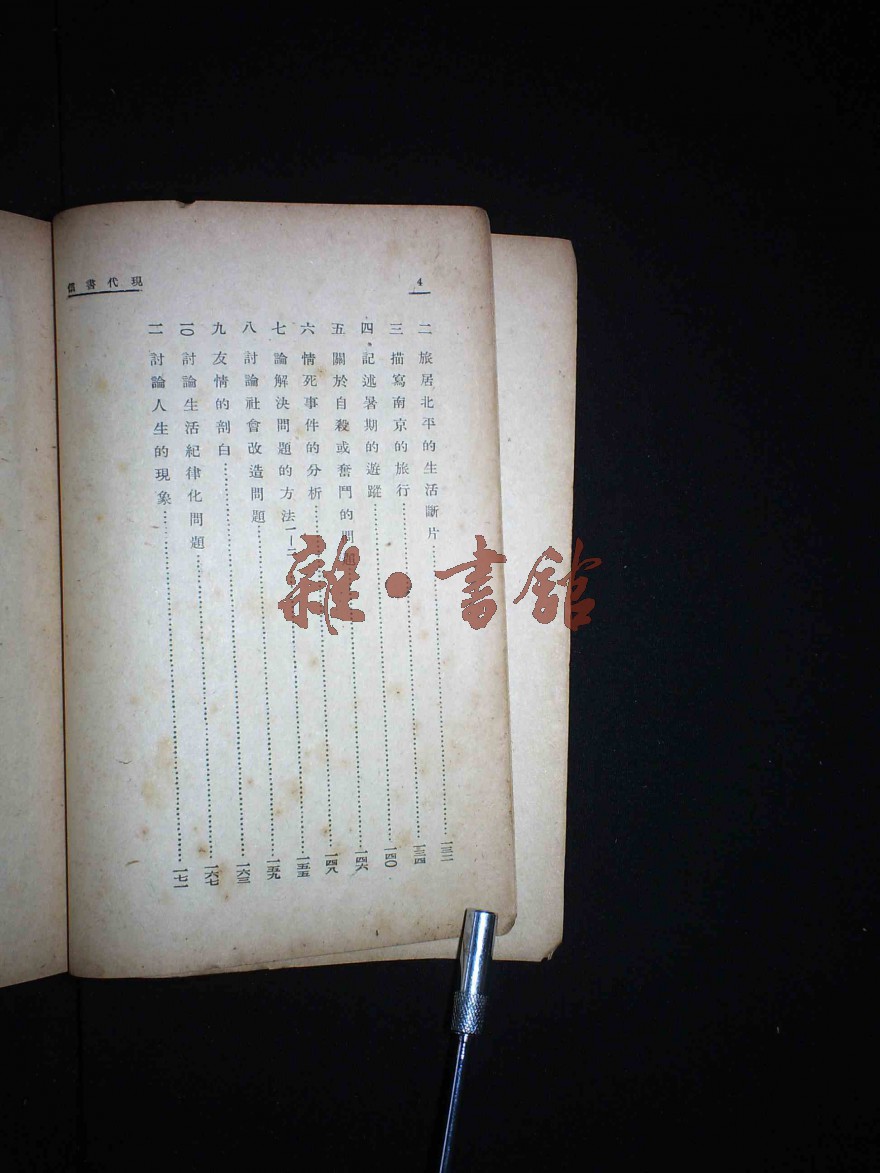 現代書信
4
二 旅居北平的生活斷片 一三二
三 描寫南京的旅行 一三四
四 記述暑期的遊蹤 一四〇
五 關於自殺或奮鬥的問題 一四六
六 情死事件的分析 一四八
七 論解決問題的方法 一五五
八 討論社會改造問題 一五九
九 友情的剖白 一六三
一〇 討論生活紀律化問題 一六七
一一 討論人生的現象 一七一
雜·書館